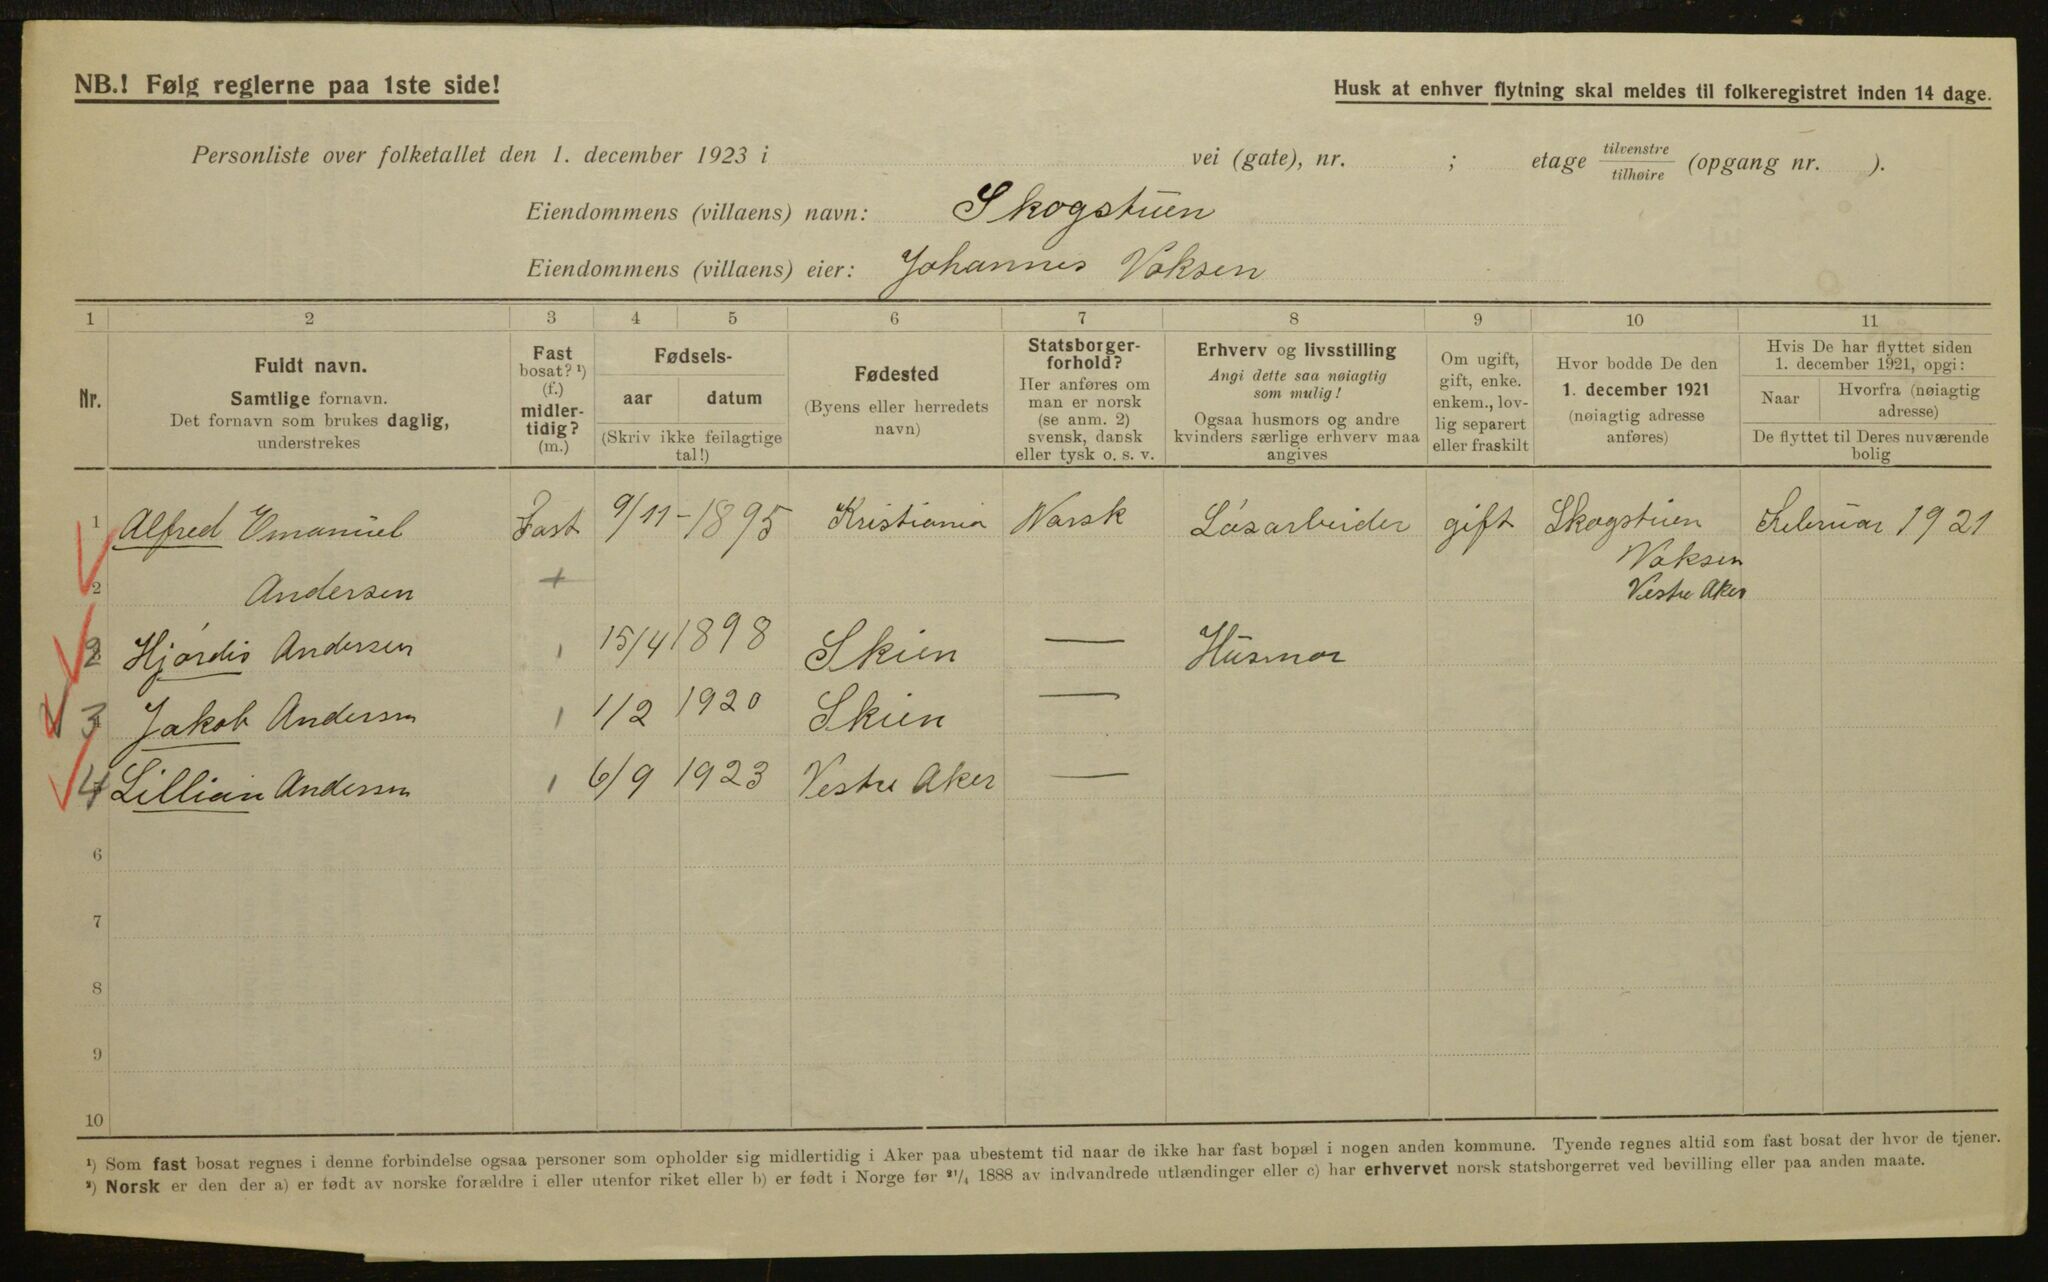 NB.! Følg reglerne paa 1ste side!
Husk at enhver flytning skal meldes til folkeregistret inden 14 dage.
Personliste over folketallet den 1. december 1923 i vei (gate), nr. ; etage tilvenstre/tilhøire (opgang nr. ).
Eiendommens (villaens) navn: Skogstuen
Eiendommens (villaens) eier: Johannes Voksen
1 2 3 4 5 6 7 8 9 10 11
Nr.
Fuldt navn.
Samtlige fornavn.
Det fornavn som brukes daglig,
understrekes
Fast
bosat? ¹)
(f.)
midler-
tidig?
(m.)
Fødsels-
aar datum
(Skriv ikke feilagtige
tal!)
Fødested
(Byens eller herredets
navn)
Statsborger-
forhold?
Her anføres om
man er norsk
(se anm. 2)
svensk, dansk
eller tysk o. s. v.
Erhverv og livsstilling
Angi dette saa nøiagtig
som mulig!
Ogsaa husmors og andre
kvinders særlige erhverv maa
angives
Om ugift,
gift, enke.
enkem., lov-
lig separert
eller fraskilt
Hvor bodde De den
1. december 1921
(nøiagtig adresse
anføres)
Hvis De har flyttet siden
1. december 1921, opgi:
Naar Hvorfra (nøiagtig
adresse)
De flyttet til Deres nuværende
bolig
1 Alfred Emanuel Fast 9/11-1895 Kristiania Norsk Løsarbeider gift Skogstuen Februar 1921
Voksen
2 Andersen + Vestre Aker
2 Hjørdis Andersen 15/4 1898 Skien — Husmor
3 Jakob Andersen 1/2 1920 Skien —
4 Lillian Andersen 6/9 1923 Vestre Aker —
6
7
8
9
10
¹) Som fast bosat regnes i denne forbindelse ogsaa personer som opholder sig midlertidig i Aker paa ubestemt tid naar de ikke har fast bopæl i nogen anden kommune. Tyende regnes altid som fast bosat der hvor de tjener.
²) Norsk er den der a) er født av norske forældre i eller utenfor riket eller b) er født i Norge før ²¹/₄ 1888 av indvandrede utlændinger eller c) har erhvervet norsk statsborgerret ved bevilling eller paa anden maate.